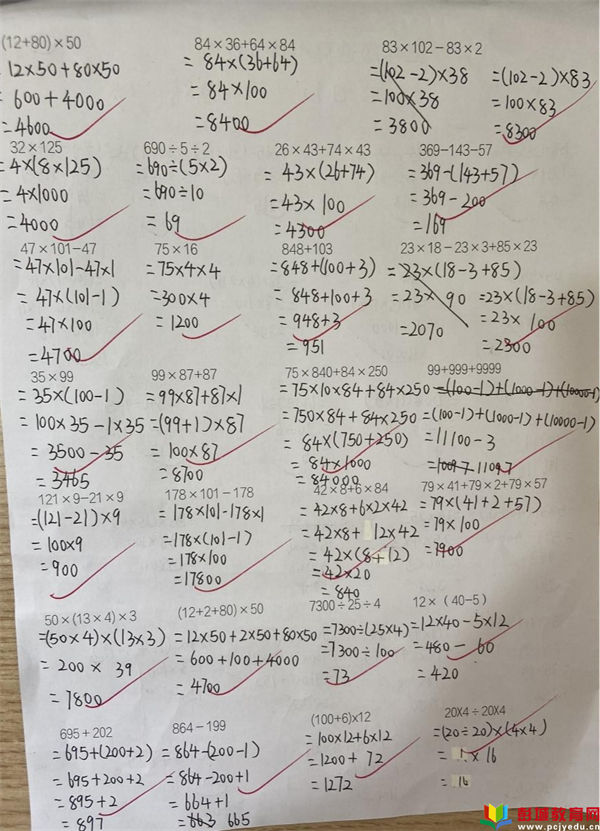 (12+80)×50
= 12×50+80×50
= 600+4000
= 4600
84×36+64×84
= 84×(36+64)
= 84×100
= 8400
83×102-83×2
=(102-2)×38
=100×38
=3800
=(102-2)×83
=100×83
=8300
32×125
=4×(8×125)
=4×1000
=4000
690÷5÷2
=690÷(5×2)
=690÷10
=69
26×43+74×43
=43×(26+74)
=43×100
=4300
369-143-57
=369-(143+57)
=369-200
=169
47×101-47
=47×101-47×1
=47×(101-1)
=47×100
=4700
75×16
=75×4×4
=300×4
=1200
848+103
=848+(100+3)
=848+100+3
=948+3
=951
23×18-23×3+85×23
=23×(18-3+85)
=23×90
=2070
=23×(18-3+85)
=23×100
=2300
35×99
=35×(100-1)
=100×35-1×35
=3500-35
=3465
99×87+87
=99×87+87×1
=(99+1)×87
=100×87
=8700
75×840+84×250
=75×10×84+84×250
=750×84+84×250
=84×(750+250)
=84×1000
=84000
99+999+9999
=(100-1)+(1000-1)+(10000-1)
=(100-1)+(1000-1)+(10000-1)
=11100-3
=11097
121×9-21×9
=(121-21)×9
=100×9
=900
178×101-178
=178×101-178×1
=178×(101-1)
=178×100
=17800
42×8+6×84
=42×8+6×2×42
=42×8+12×42
=42×(8+12)
=42×20
=840
79×41+79×2+79×57
=79×(41+2+57)
=79×100
=7900
50×(13×4)×3
=(50×4)×(13×3)
=200×39
=7800
(12+2+80)×50
=12×50+2×50+80×50
=600+100+4000
=4700
7300÷25÷4
=7300÷(25×4)
=7300÷100
=73
12×(40-5)
=12×40-5×12
=480-60
=420
695+202
=695+(200+2)
=695+200+2
=895+2
=897
864-199
=864-(200-1)
=864-200+1
=664+1
=663 665
(100+6)×12
=100×12+6×12
=1200+72
=1272
20X4÷20X4
=(20÷20)×(4×4)
=1×16
=16
彭璟教育网
www.pcjyedu.cn